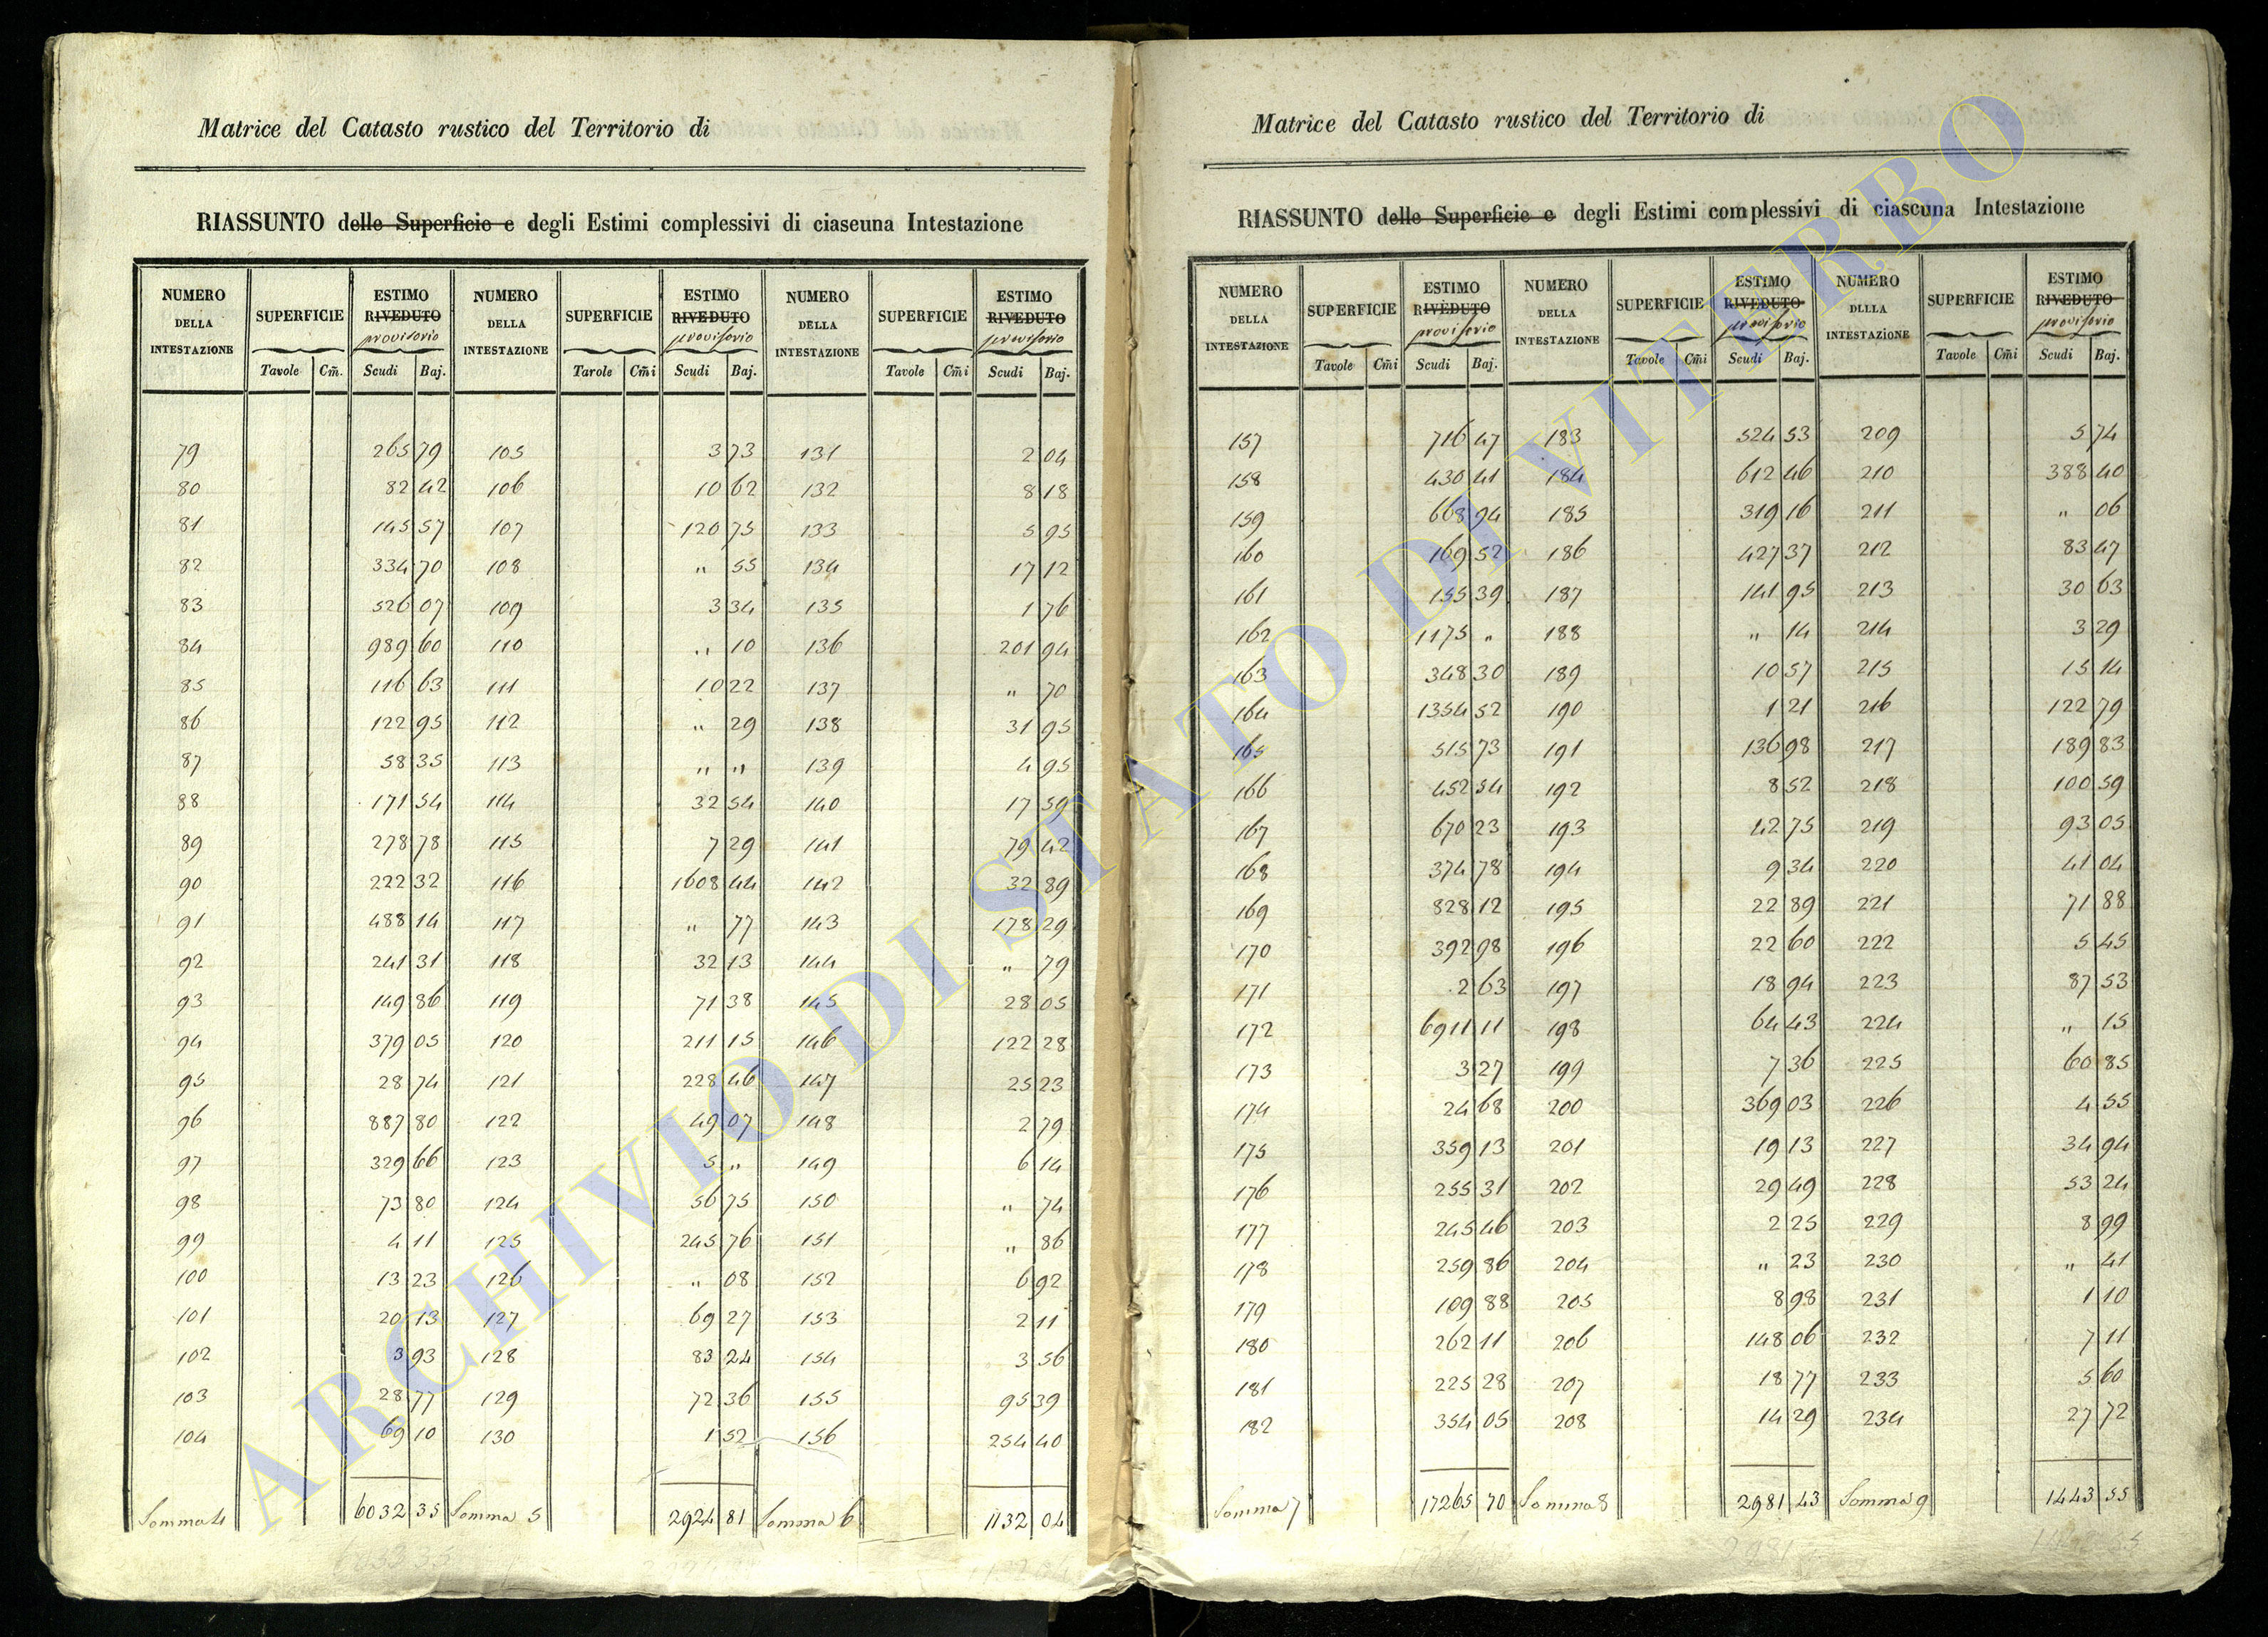 Matrice del Catasto rustico del Territorio di
RIASSUNTO delle Superficie e degli Estimi complessivi di ciascuna Intestazione
NUMERO DELLA INTESTAZIONE SUPERFICIE ESTIMO RIVEDUTO provisorio NUMERO DELLA INTESTAZIONE SUPERFICIE ESTIMO RIVEDUTO provisorio NUMERO DELLA INTESTAZIONE SUPERFICIE ESTIMO RIVEDUTO provisorio
Tavole Cm̃. Scudi Baj. Tavole Cm̃i Scudi Baj. Tavole Cm̃i Scudi Baj.
79 265 79 105 3 73 131 2 04
80 82 42 106 10 62 132 8 18
81 145 57 107 120 75 133 5 95
82 334 70 108 " 55 134 17 12
83 526 07 109 3 34 135 1 76
84 989 60 110 " 10 136 201 94
85 116 63 111 10 22 137 " 70
86 122 95 112 " 29 138 31 95
87 58 35 113 " " 139 4 95
88 171 54 114 32 54 140 17 59
89 278 78 115 7 29 141 79 42
90 222 32 116 1608 44 142 32 89
91 488 14 117 " 77 143 178 29
92 241 31 118 32 13 144 " 79
93 149 86 119 71 38 145 28 05
94 379 05 120 211 15 146 122 28
95 28 74 121 228 46 147 25 23
96 887 80 122 49 07 148 2 79
97 329 66 123 5 " 149 6 14
98 73 80 124 56 75 150 " 74
99 4 11 125 245 76 151 " 86
100 13 23 126 " 08 152 6 92
101 20 13 127 69 27 153 2 11
102 3 93 128 83 24 154 3 56
103 28 77 129 72 36 155 95 39
104 69 10 130 1 52 156 254 40
Somma 4 6032 35 Somma 5 2924 81 Somma 6 1132 04
Matrice del Catasto rustico del Territorio di
RIASSUNTO delle Superficie e degli Estimi complessivi di ciascuna Intestazione
NUMERO DELLA INTESTAZIONE SUPERFICIE ESTIMO RIVEDUTO provisorio NUMERO DELLA INTESTAZIONE SUPERFICIE ESTIMO RIVEDUTO provisorio NUMERO DLLLA INTESTAZIONE SUPERFICIE ESTIMO RIVEDUTO provisorio
Tavole Cm̃i Scudi Baj. Tavole Cm̃i Scudi Baj. Tavole Cm̃i Scudi Baj.
157 716 47 183 524 53 209 5 74
158 430 41 184 612 46 210 388 40
159 608 94 185 319 16 211 " 06
160 169 52 186 427 37 212 83 47
161 155 39 187 141 95 213 30 63
162 1175 " 188 " 14 214 3 29
163 348 30 189 10 57 215 15 14
164 1354 52 190 1 21 216 122 79
165 515 73 191 136 98 217 189 83
166 452 54 192 8 52 218 100 59
167 670 23 193 42 75 219 93 05
168 374 78 194 9 34 220 41 04
169 828 12 195 22 89 221 71 88
170 392 98 196 22 60 222 5 45
171 2 63 197 18 94 223 87 53
172 6911 11 198 64 43 224 " 15
173 3 27 199 7 36 225 60 85
174 24 68 200 369 03 226 4 55
175 359 13 201 19 13 227 34 94
176 255 31 202 29 49 228 53 24
177 245 46 203 2 25 229 8 99
178 259 86 204 " 23 230 " 41
179 109 88 205 8 98 231 1 10
180 262 11 206 148 06 232 7 11
181 225 28 207 18 77 233 5 60
182 354 05 208 14 29 234 27 72
Somma 7 17265 70 Somma 8 2981 43 Somma 9 1443 55
ARCHIVIO DI STATO DI VITERBO